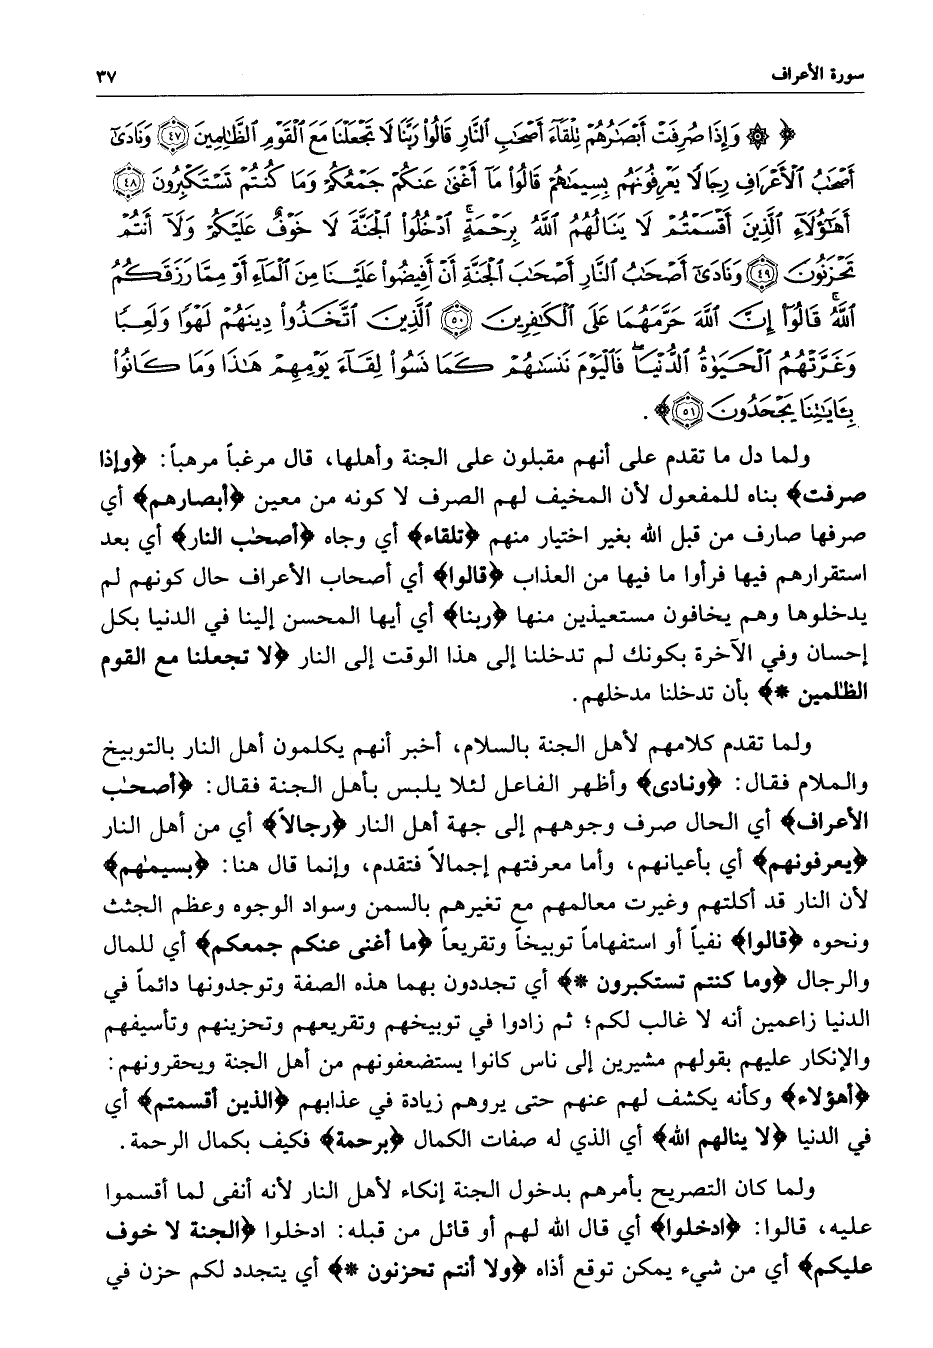 سورة الأعراف ٣٧
﴿ ۞ وَإِذَا صُرِفَتْ أَبْصَٰرُهُمْ تِلْقَآءَ أَصْحَٰبِ ٱلنَّارِ قَالُوا۟ رَبَّنَا لَا تَجْعَلْنَا مَعَ ٱلْقَوْمِ ٱلظَّٰلِمِينَ ﴿٤٧﴾ وَنَادَىٰٓ
أَصْحَٰبُ ٱلْأَعْرَافِ رِجَالًا يَعْرِفُونَهُم بِسِيمَىٰهُمْ قَالُوا۟ مَآ أَغْنَىٰ عَنكُمْ جَمْعُكُمْ وَمَا كُنتُمْ تَسْتَكْبِرُونَ ﴿٤٨﴾
أَهَٰٓؤُلَآءِ ٱلَّذِينَ أَقْسَمْتُمْ لَا يَنَالُهُمُ ٱللَّهُ بِرَحْمَةٍ ۚ ٱدْخُلُوا۟ ٱلْجَنَّةَ لَا خَوْفٌ عَلَيْكُمْ وَلَآ أَنتُمْ
تَحْزَنُونَ ﴿٤٩﴾ وَنَادَىٰٓ أَصْحَٰبُ ٱلنَّارِ أَصْحَٰبَ ٱلْجَنَّةِ أَنْ أَفِيضُوا۟ عَلَيْنَا مِنَ ٱلْمَآءِ أَوْ مِمَّا رَزَقَكُمُ
ٱللَّهُ ۚ قَالُوٓا۟ إِنَّ ٱللَّهَ حَرَّمَهُمَا عَلَى ٱلْكَٰفِرِينَ ﴿٥٠﴾ ٱلَّذِينَ ٱتَّخَذُوا۟ دِينَهُمْ لَهْوًا وَلَعِبًا
وَغَرَّتْهُمُ ٱلْحَيَوٰةُ ٱلدُّنْيَا ۚ فَٱلْيَوْمَ نَنسَىٰهُمْ كَمَا نَسُوا۟ لِقَآءَ يَوْمِهِمْ هَٰذَا وَمَا كَانُوا۟
بِـَٔايَٰتِنَا يَجْحَدُونَ ﴿٥١﴾ ﴾ .
ولما دل ما تقدم على أنهم مقبلون على الجنة وأهلها، قال مرغباً مرهباً: ﴿وإذا
صرفت﴾ بناه للمفعول لأن المخيف لهم الصرف لا كونه من معين ﴿أبصارهم﴾ أي
صرفها صارف من قبل الله بغير اختيار منهم ﴿تلقاء﴾ أي وجاه ﴿أصحٰب النار﴾ أي بعد
استقرارهم فيها فرأوا ما فيها من العذاب ﴿قالوا﴾ أي أصحاب الأعراف حال كونهم لم
يدخلوها وهم يخافون مستعيذين منها ﴿ربنا﴾ أي أيها المحسن إلينا في الدنيا بكل
إحسان وفي الآخرة بكونك لم تدخلنا إلى هذا الوقت إلى النار ﴿لا تجعلنا مع القوم
الظٰلمين *﴾ بأن تدخلنا مدخلهم.
ولما تقدم كلامهم لأهل الجنة بالسلام، أخبر أنهم يكلمون أهل النار بالتوبيخ
والملام فقال: ﴿ونادى﴾ وأظهر الفاعل لئلا يلبس بأهل الجنة فقال: ﴿أصحٰب
الأعراف﴾ أي الحال صرف وجوههم إلى جهة أهل النار ﴿رجالاً﴾ أي من أهل النار
﴿يعرفونهم﴾ أي بأعيانهم، وأما معرفتهم إجمالاً فتقدم، وإنما قال هنا: ﴿بسيمٰهم﴾
لأن النار قد أكلتهم وغيرت معالمهم مع تغيرهم بالسمن وسواد الوجوه وعظم الجثث
ونحوه ﴿قالوا﴾ نفياً أو استفهاماً توبيخاً وتقريعاً ﴿ما أغنى عنكم جمعكم﴾ أي للمال
والرجال ﴿وما كنتم تستكبرون *﴾ أي تجددون بهما هذه الصفة وتوجدونها دائماً في
الدنيا زاعمين أنه لا غالب لكم؛ ثم زادوا في توبيخهم وتقريعهم وتحزينهم وتأسيفهم
والإنكار عليهم بقولهم مشيرين إلى ناس كانوا يستضعفونهم من أهل الجنة ويحقرونهم:
﴿أهؤلاء﴾ وكأنه يكشف لهم عنهم حتى يروهم زيادة في عذابهم ﴿الذين أقسمتم﴾ أي
في الدنيا ﴿لا ينالهم الله﴾ أي الذي له صفات الكمال ﴿برحمة﴾ فكيف بكمال الرحمة.
ولما كان التصريح بأمرهم بدخول الجنة إنكاء لأهل النار لأنه أنفى لما أقسموا
عليه، قالوا: ﴿ادخلوا﴾ أي قال الله لهم أو قائل من قبله: ادخلوا ﴿الجنة لا خوف
عليكم﴾ أي من شيء يمكن توقع أذاه ﴿ولا أنتم تحزنون *﴾ أي يتجدد لكم حزن في